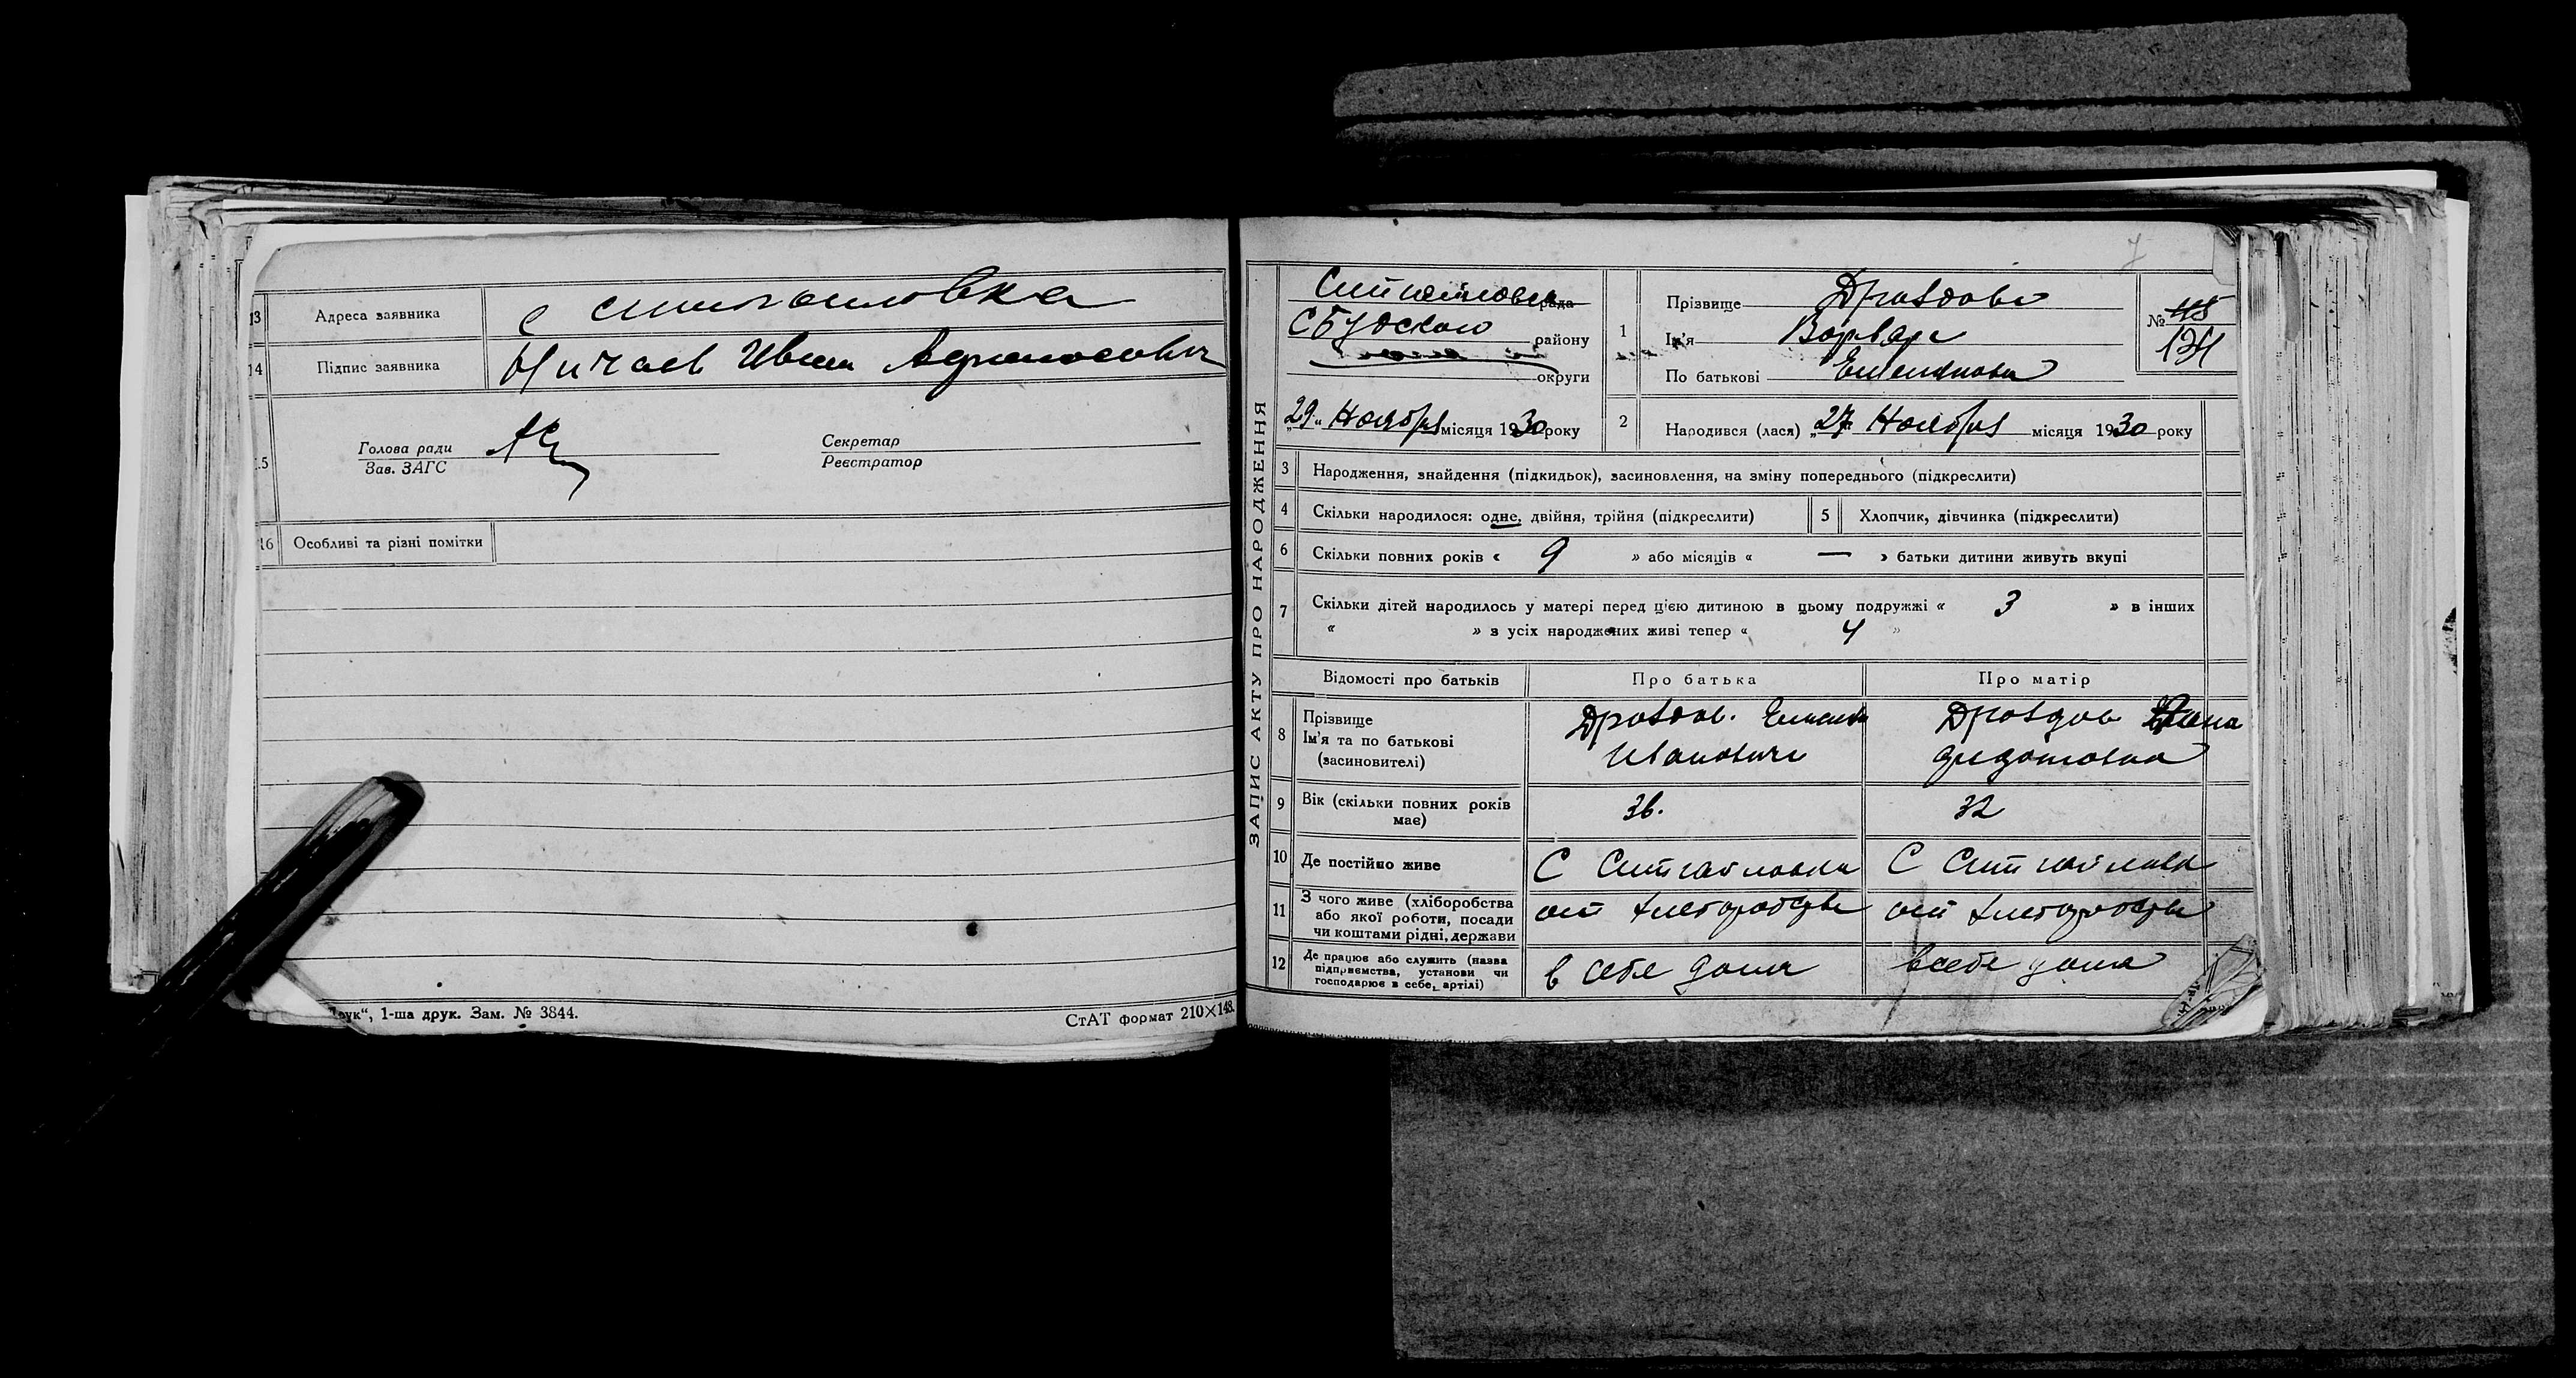 13 Адреса заявника с
14 Підпис заявника Ничаев Иван
15 Голова ради
Зав. ЗАГС
Секретар
Реєстратор
16 Особливі та різні помітки
1-ша друк. Зам. № 3844.
СтАТ формат 210×148.
7
ЗАПИС АКТУ ПРО НАРОДЖЕННЯ
рада
СБудского району
округи
„29“ Ноября місяця 1930 року
1 Прізвище Дроздова
Ім'я Варвара
По батькові Емельяновна
№ 115
134
2 Народився (лася) „27“ Ноября місяця 1930 року
3 Народження, знайдення (підкидьок), засиновлення, на зміну попереднього (підкреслити)
4 Скільки народилося: одне, двійня, трійня (підкреслити)
5 Хлопчик, дівчинка (підкреслити)
6 Скільки повних років « 9 » або місяців « — » батьки дитини живуть вкупі
7 Скільки дітей народилось у матері перед цією дитиною в цьому подружжі « 3 » в інших
« » з усіх народжених живі тепер « 4 »
Відомості про батьків
Про батька
Про матір
8 Прізвище
Ім'я та по батькові
(засиновителі)
Дроздов. Емельян
Иванович
Дроздов
Федотовна
9 Вік (скільки повних років
має)
36.
32
10 Де постійно живе
С
С
11 З чого живе (хліборобства
або якої роботи, посади
чи коштами рідні, держави
от
от
12 Де працює або служить (назва
підприємства, установи чи
господарює в себе, артілі)
в себе дома
всебе дома